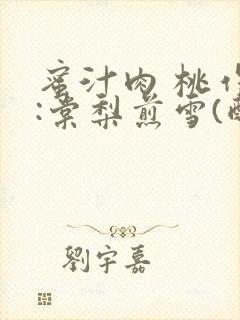 蜜汁肉桃作
:棠梨煎雪(
劉宇嘉